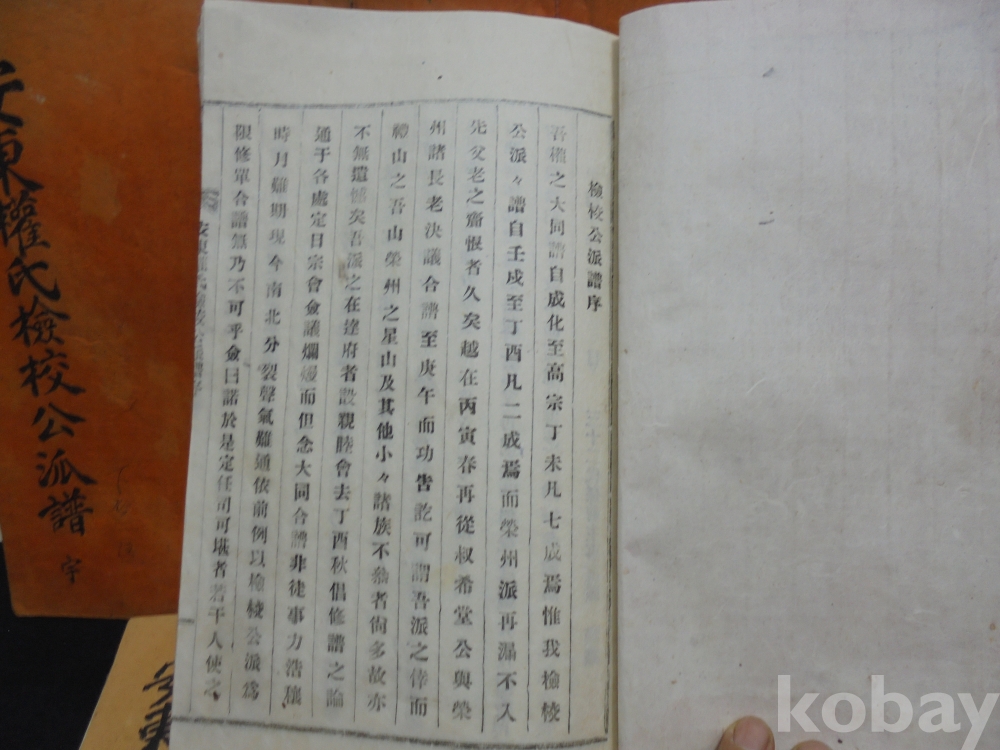 檢校公派譜序
吾權之大同譜自成化至高宗丁未凡七成焉惟我檢校
公派々譜自壬戍至丁酉凡二成焉而榮州派再漏不入
先父老之齎恨者久矣越在丙寅春再從叔希堂公與榮
州諸長老決議合譜至庚午而功告訖可謂吾派之倖而
禮山之吾山榮州之星山及其他小々諸族不參者尙多故亦
不無遺憾矣吾派之在達府者設親睦會去丁酉秋倡修譜之論
通于各處定日宗會僉議爛熳而但念大同合譜非徒事力浩穰
時月難期現今南北分裂聲氣難通依前例以檢校公派爲
限修單合譜無乃不可乎僉曰諾於是定任司可堪者若干人使之
東權氏檢校公派譜
宇
kobay